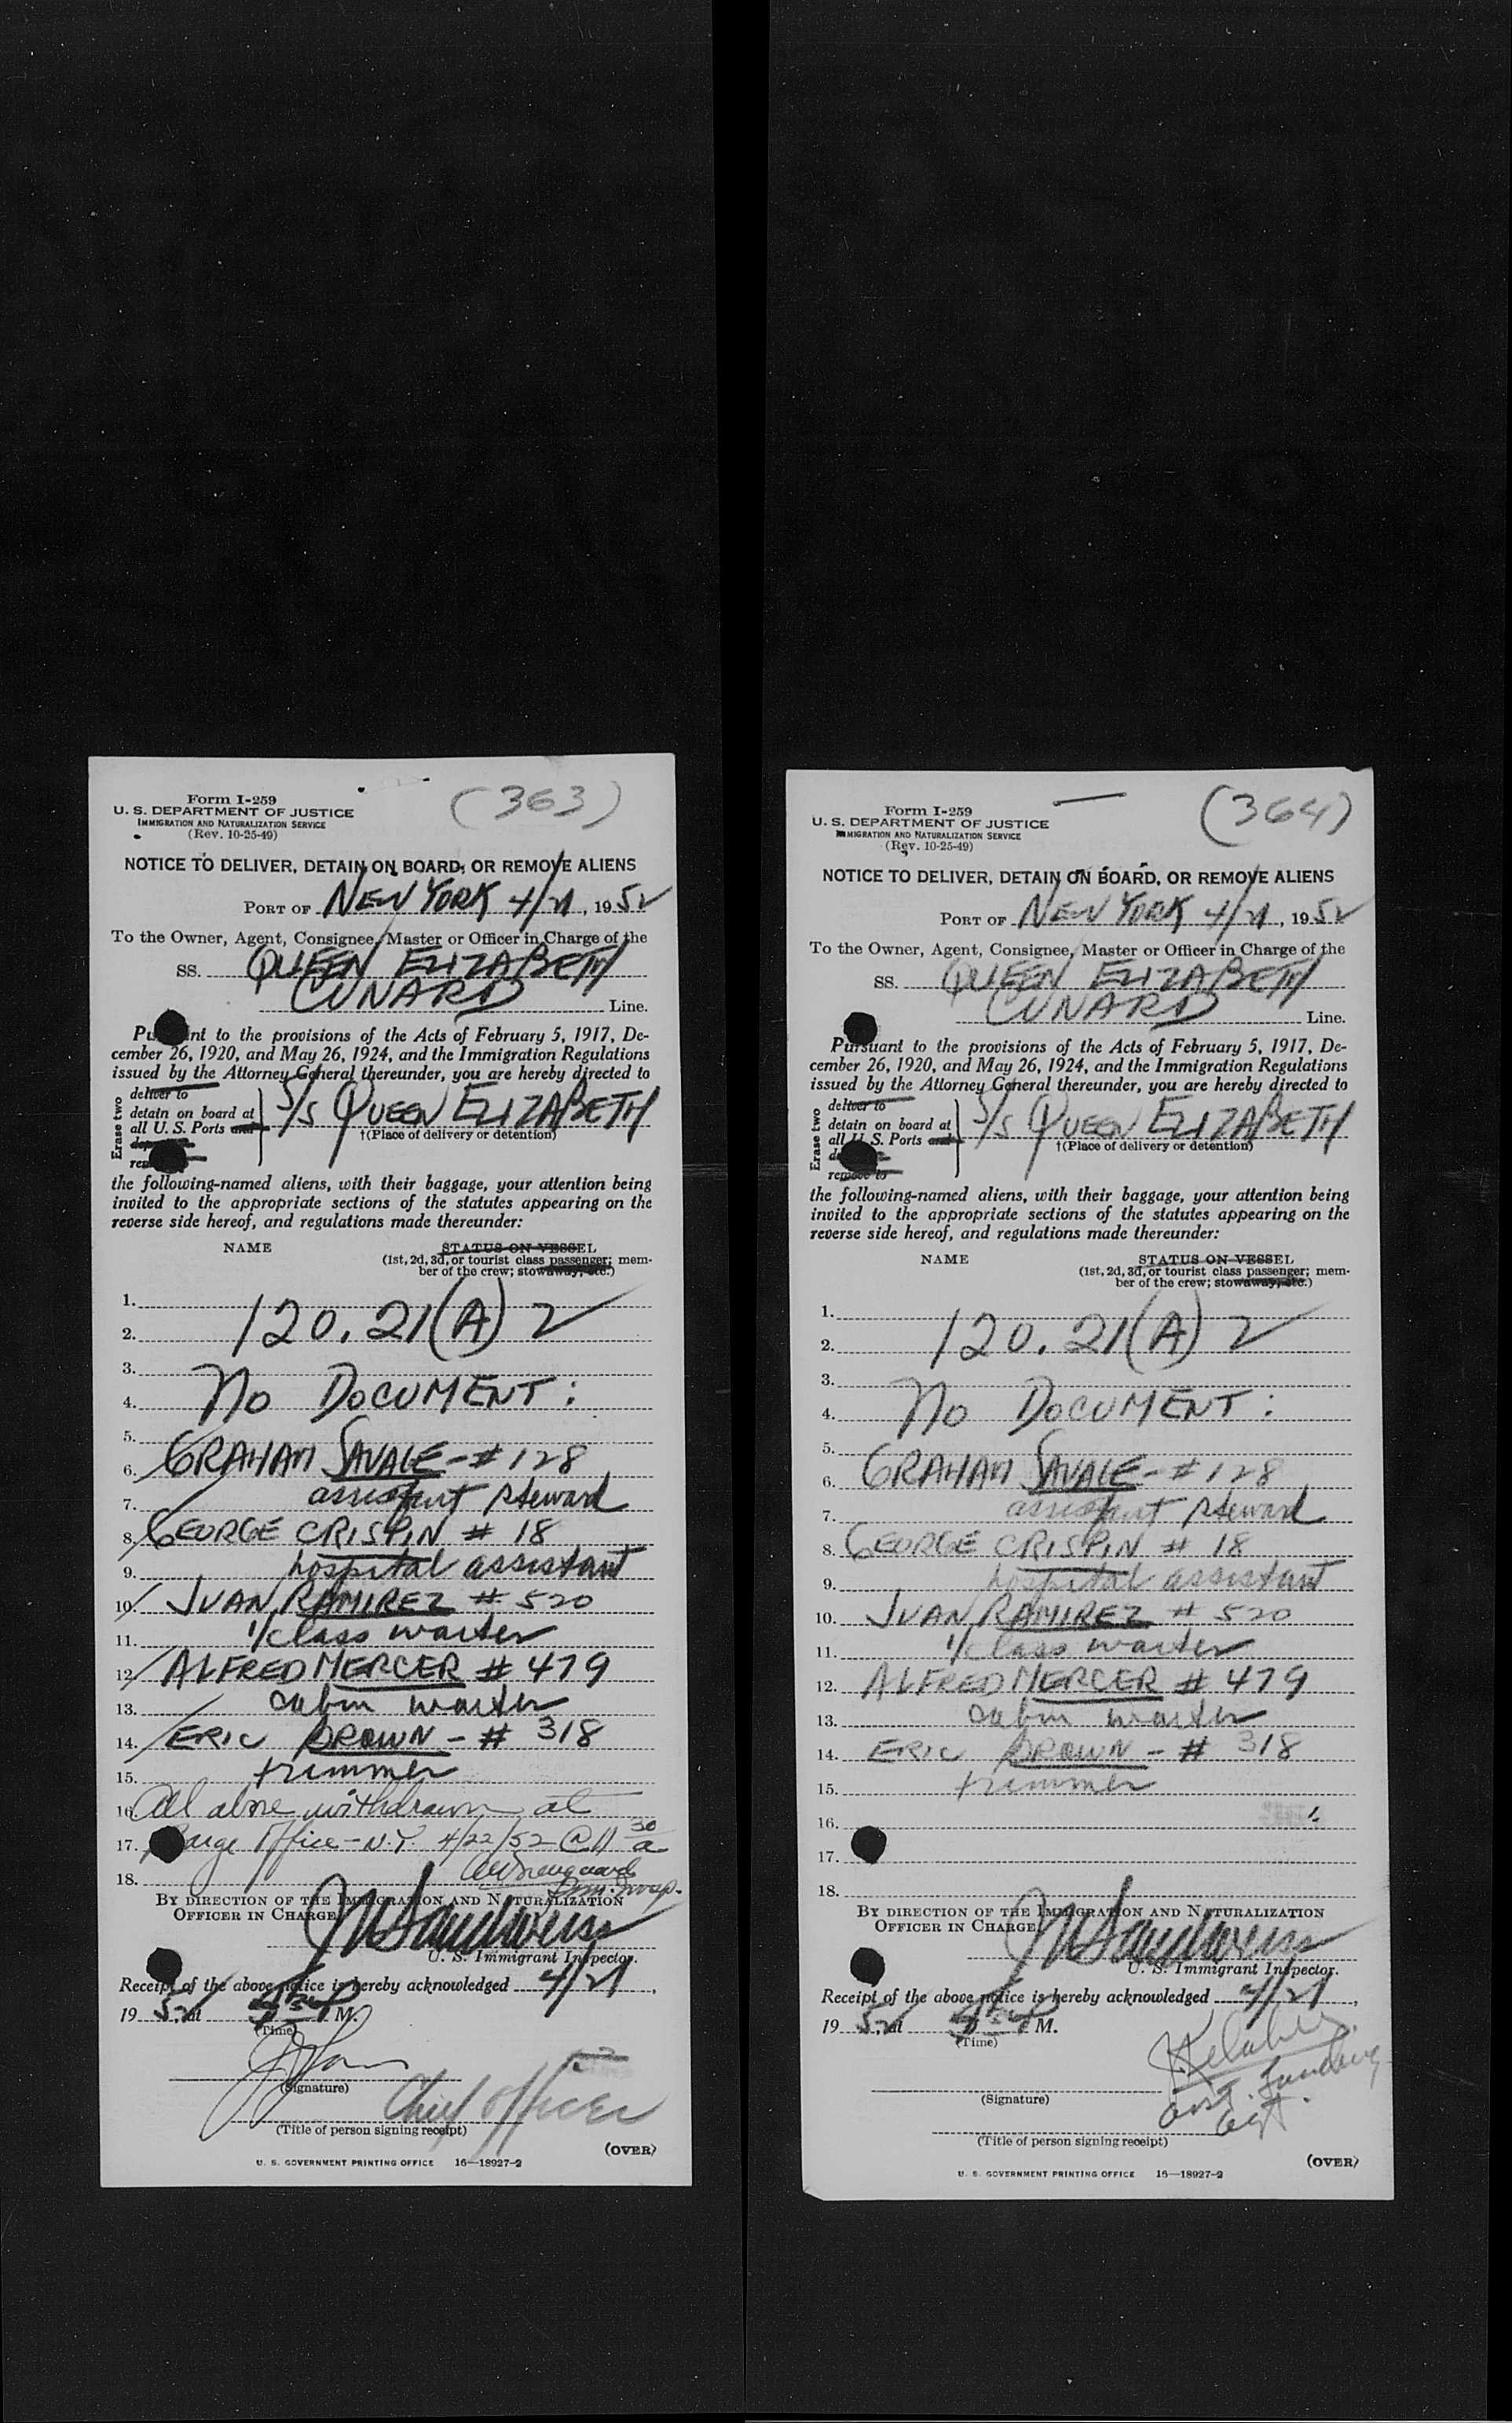 (363)
Form I-259
U. S. DEPARTMENT OF JUSTICE
IMMIGRATION AND NATURALIZATION SERVICE
(Rev. 10-25-49)
NOTICE TO DELIVER, DETAIN ON BOARD, OR REMOVE ALIENS
PORT OF NEW YORK 4/21, 1952
To the Owner, Agent, Consignee, Master or Officer in Charge of the
SS. QUEEN ELIZABETH
CUNARD Line.
Pursuant to the provisions of the Acts of February 5, 1917, De-
cember 26, 1920, and May 26, 1924, and the Immigration Regulations
issued by the Attorney General thereunder, you are hereby directed to
Erase two
deliver to
detain on board at
all U. S. Ports and
S/S QUEEN ELIZABETH
†(Place of delivery or detention)
the following-named aliens, with their baggage, your attention being
invited to the appropriate sections of the statutes appearing on the
reverse side hereof, and regulations made thereunder:
NAME STATUS ON VESSEL
(1st, 2d, 3d, or tourist class passenger; mem-
ber of the crew; stowaway, etc.)
1.
2. 120.21(A) 2
3.
4. NO DOCUMENT:
5.
6. GRAHAM SAVAGE - # 128
7. assistant steward
8. GEORGE CRISPIN # 18
9. hospital assistant
10. JUAN RAMIREZ # 520
11. 1/class waiter
12. ALFRED MERCER # 479
13. cabin waiter
14. ERIC BROWN - # 318
15. trimmer
16. All above withdrawn at
17. Barge Office - N.Y. 4/22/52 @ 11 30 a
18.
Imm. Insp.
BY DIRECTION OF THE IMMIGRATION AND NATURALIZATION
OFFICER IN CHARGE
U. S. Immigrant Inspector.
Receipt of the above notice is hereby acknowledged 4/21,
19 52, at M.
(Time)
(Signature)
Chief Officer
(Title of person signing receipt)
(OVER)
U. S. GOVERNMENT PRINTING OFFICE 16—18927-2
(364)
Form I-259
U. S. DEPARTMENT OF JUSTICE
IMMIGRATION AND NATURALIZATION SERVICE
(Rev. 10-25-49)
NOTICE TO DELIVER, DETAIN ON BOARD, OR REMOVE ALIENS
PORT OF NEW YORK 4/21, 1952
To the Owner, Agent, Consignee, Master or Officer in Charge of the
SS. QUEEN ELIZABETH
CUNARD Line.
Pursuant to the provisions of the Acts of February 5, 1917, De-
cember 26, 1920, and May 26, 1924, and the Immigration Regulations
issued by the Attorney General thereunder, you are hereby directed to
Erase two
deliver to
detain on board at
all U. S. Ports and
remove to
S/S QUEEN ELIZABETH
†(Place of delivery or detention)
the following-named aliens, with their baggage, your attention being
invited to the appropriate sections of the statutes appearing on the
reverse side hereof, and regulations made thereunder:
NAME STATUS ON VESSEL
(1st, 2d, 3d, or tourist class passenger; mem-
ber of the crew; stowaway, etc.)
1.
2. 120.21(A) 2
3.
4. NO DOCUMENT:
5.
6. GRAHAM SAVAGE - # 128
7. assistant steward
8. GEORGE CRISPIN # 18
9. hospital assistant
10. JUAN RAMIREZ # 520
11. 1/class waiter
12. ALFRED MERCER # 479
13. cabin waiter
14. ERIC BROWN - # 318
15. trimmer
16.
17.
18.
BY DIRECTION OF THE IMMIGRATION AND NATURALIZATION
OFFICER IN CHARGE
U. S. Immigrant Inspector.
Receipt of the above notice is hereby acknowledged 4/21,
19 52, at M.
(Time)
(Signature)
(Title of person signing receipt)
(OVER)
U. S. GOVERNMENT PRINTING OFFICE 16—18927-2